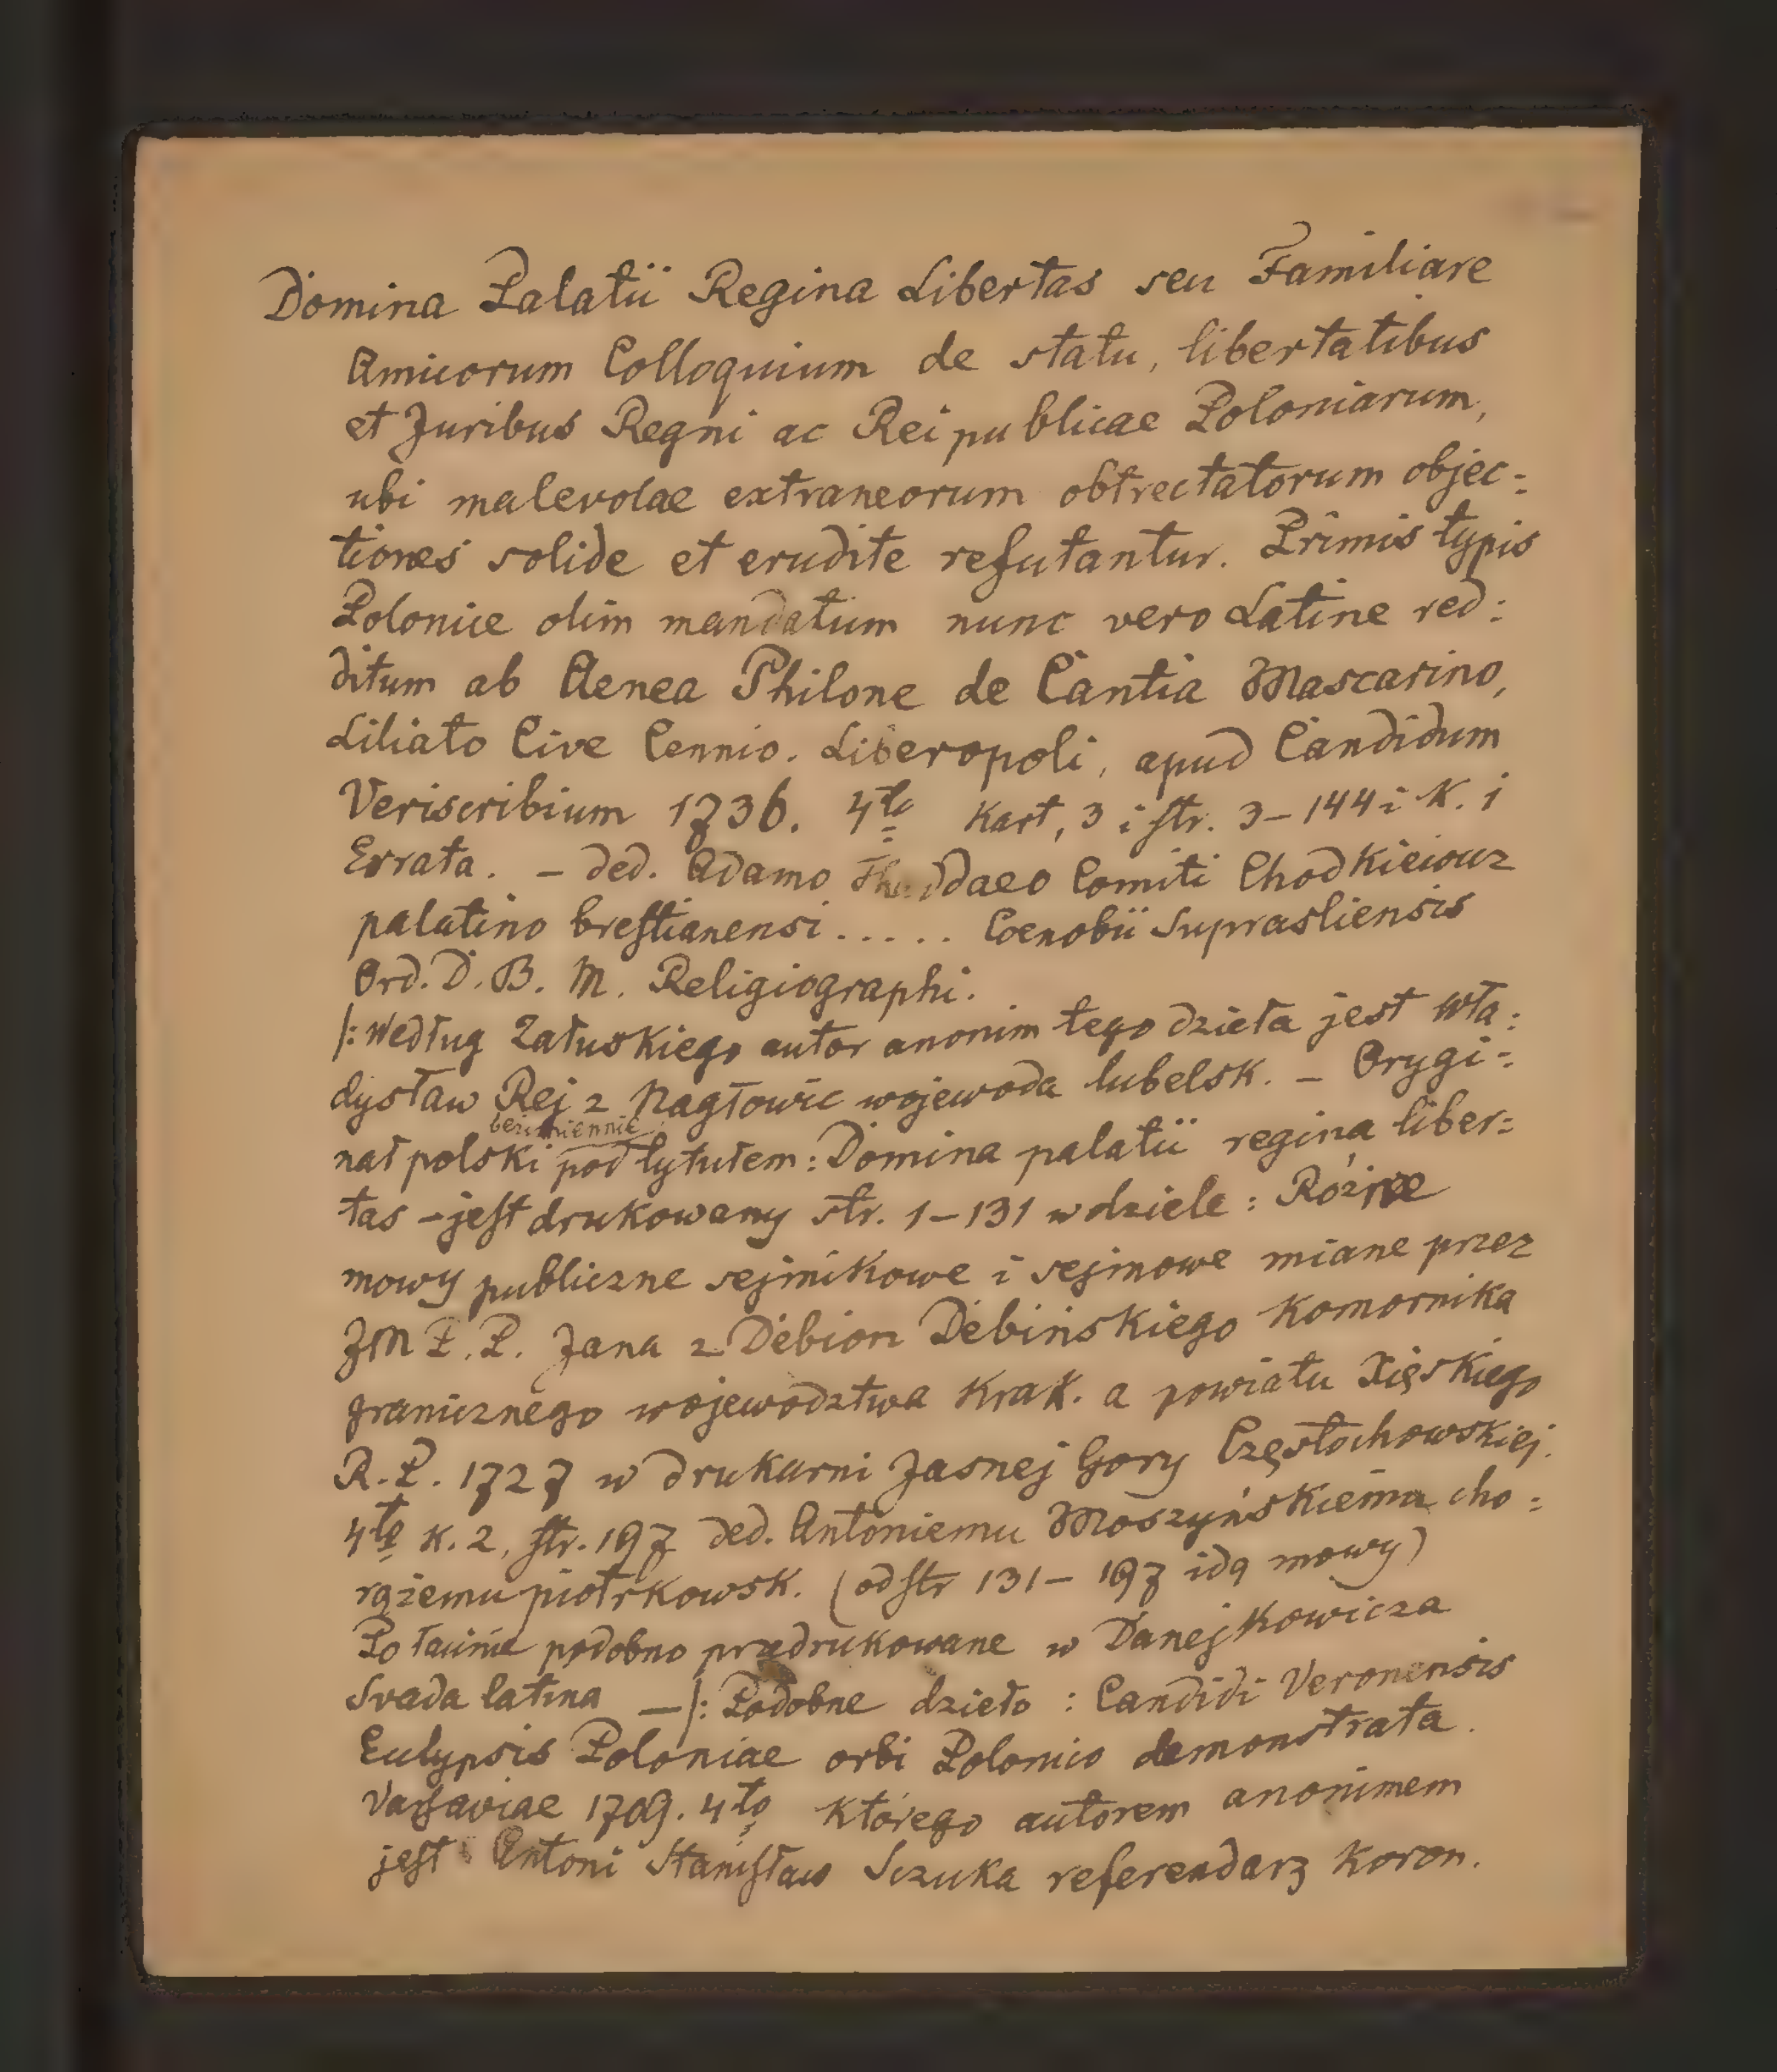 Domina Palatii Regina Libertas seu Familiare
Amicorum Colloquium de statu, libertatibus
et Juribus Regni ac Reipublicae Poloniarum,
ubi malevolae extraneorum obtrectatorum objec=
tiones solide et erudite refutantur. Primis typis
Polonice olim mandatum nunc vero Latine red:
ditum ab Aenea Philone de Cantia Mascarino,
Liliato Cive Cennio. Liberopoli, apud Candidum
Veriscribium 1736. 4to Kart, 3 i str. 3–144 i K. 1
Errata. – ded. Adamo Thaddaeo Comiti Chodkiewicz
palatino brestianensi ..... Coenobii Suprasliensis
Ord. D. B. M. Religiographi.
/: Według Załuskiego autor anonim tego dzieła jest Wła:
dysław Rej z Nagłowic wojewoda lubelsk. – Orygi=
bezimiennie
nał polski pod tytułem: Domina palatii regina liber=
tas – jest drukowany str. 1–131 w dziele: Różne
mowy publiczne sejmikowe i sejmowe miane przez
JM P. P. Jana z Dębion Dębińskiego Komornika
granicznego województwa Krak. a powiatu Xięskiego
R. P. 1727 w drukarni Jasnej Gory Częstochowskiej.
4to K. 2, str. 197 ded. Antoniemu Moszyńskiemu cho=
rążemu piotrkowsk. (od str 131–197 idą mowy)
Po łacinie podobno przedrukowane w Danejkowicza
Svada latina —/: Podobne dzieło: Candidi Veronensis
Eclypsis Poloniae orbi Polonico demonstrata.
Varsaviae 1709. 4to którego autorem anonimem
jest Antoni Stanisław Sczuka referendarz Koron.